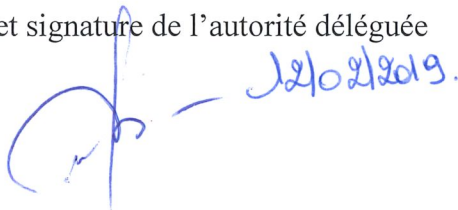 et signature de l’autorité déléguée
12/02/2019.